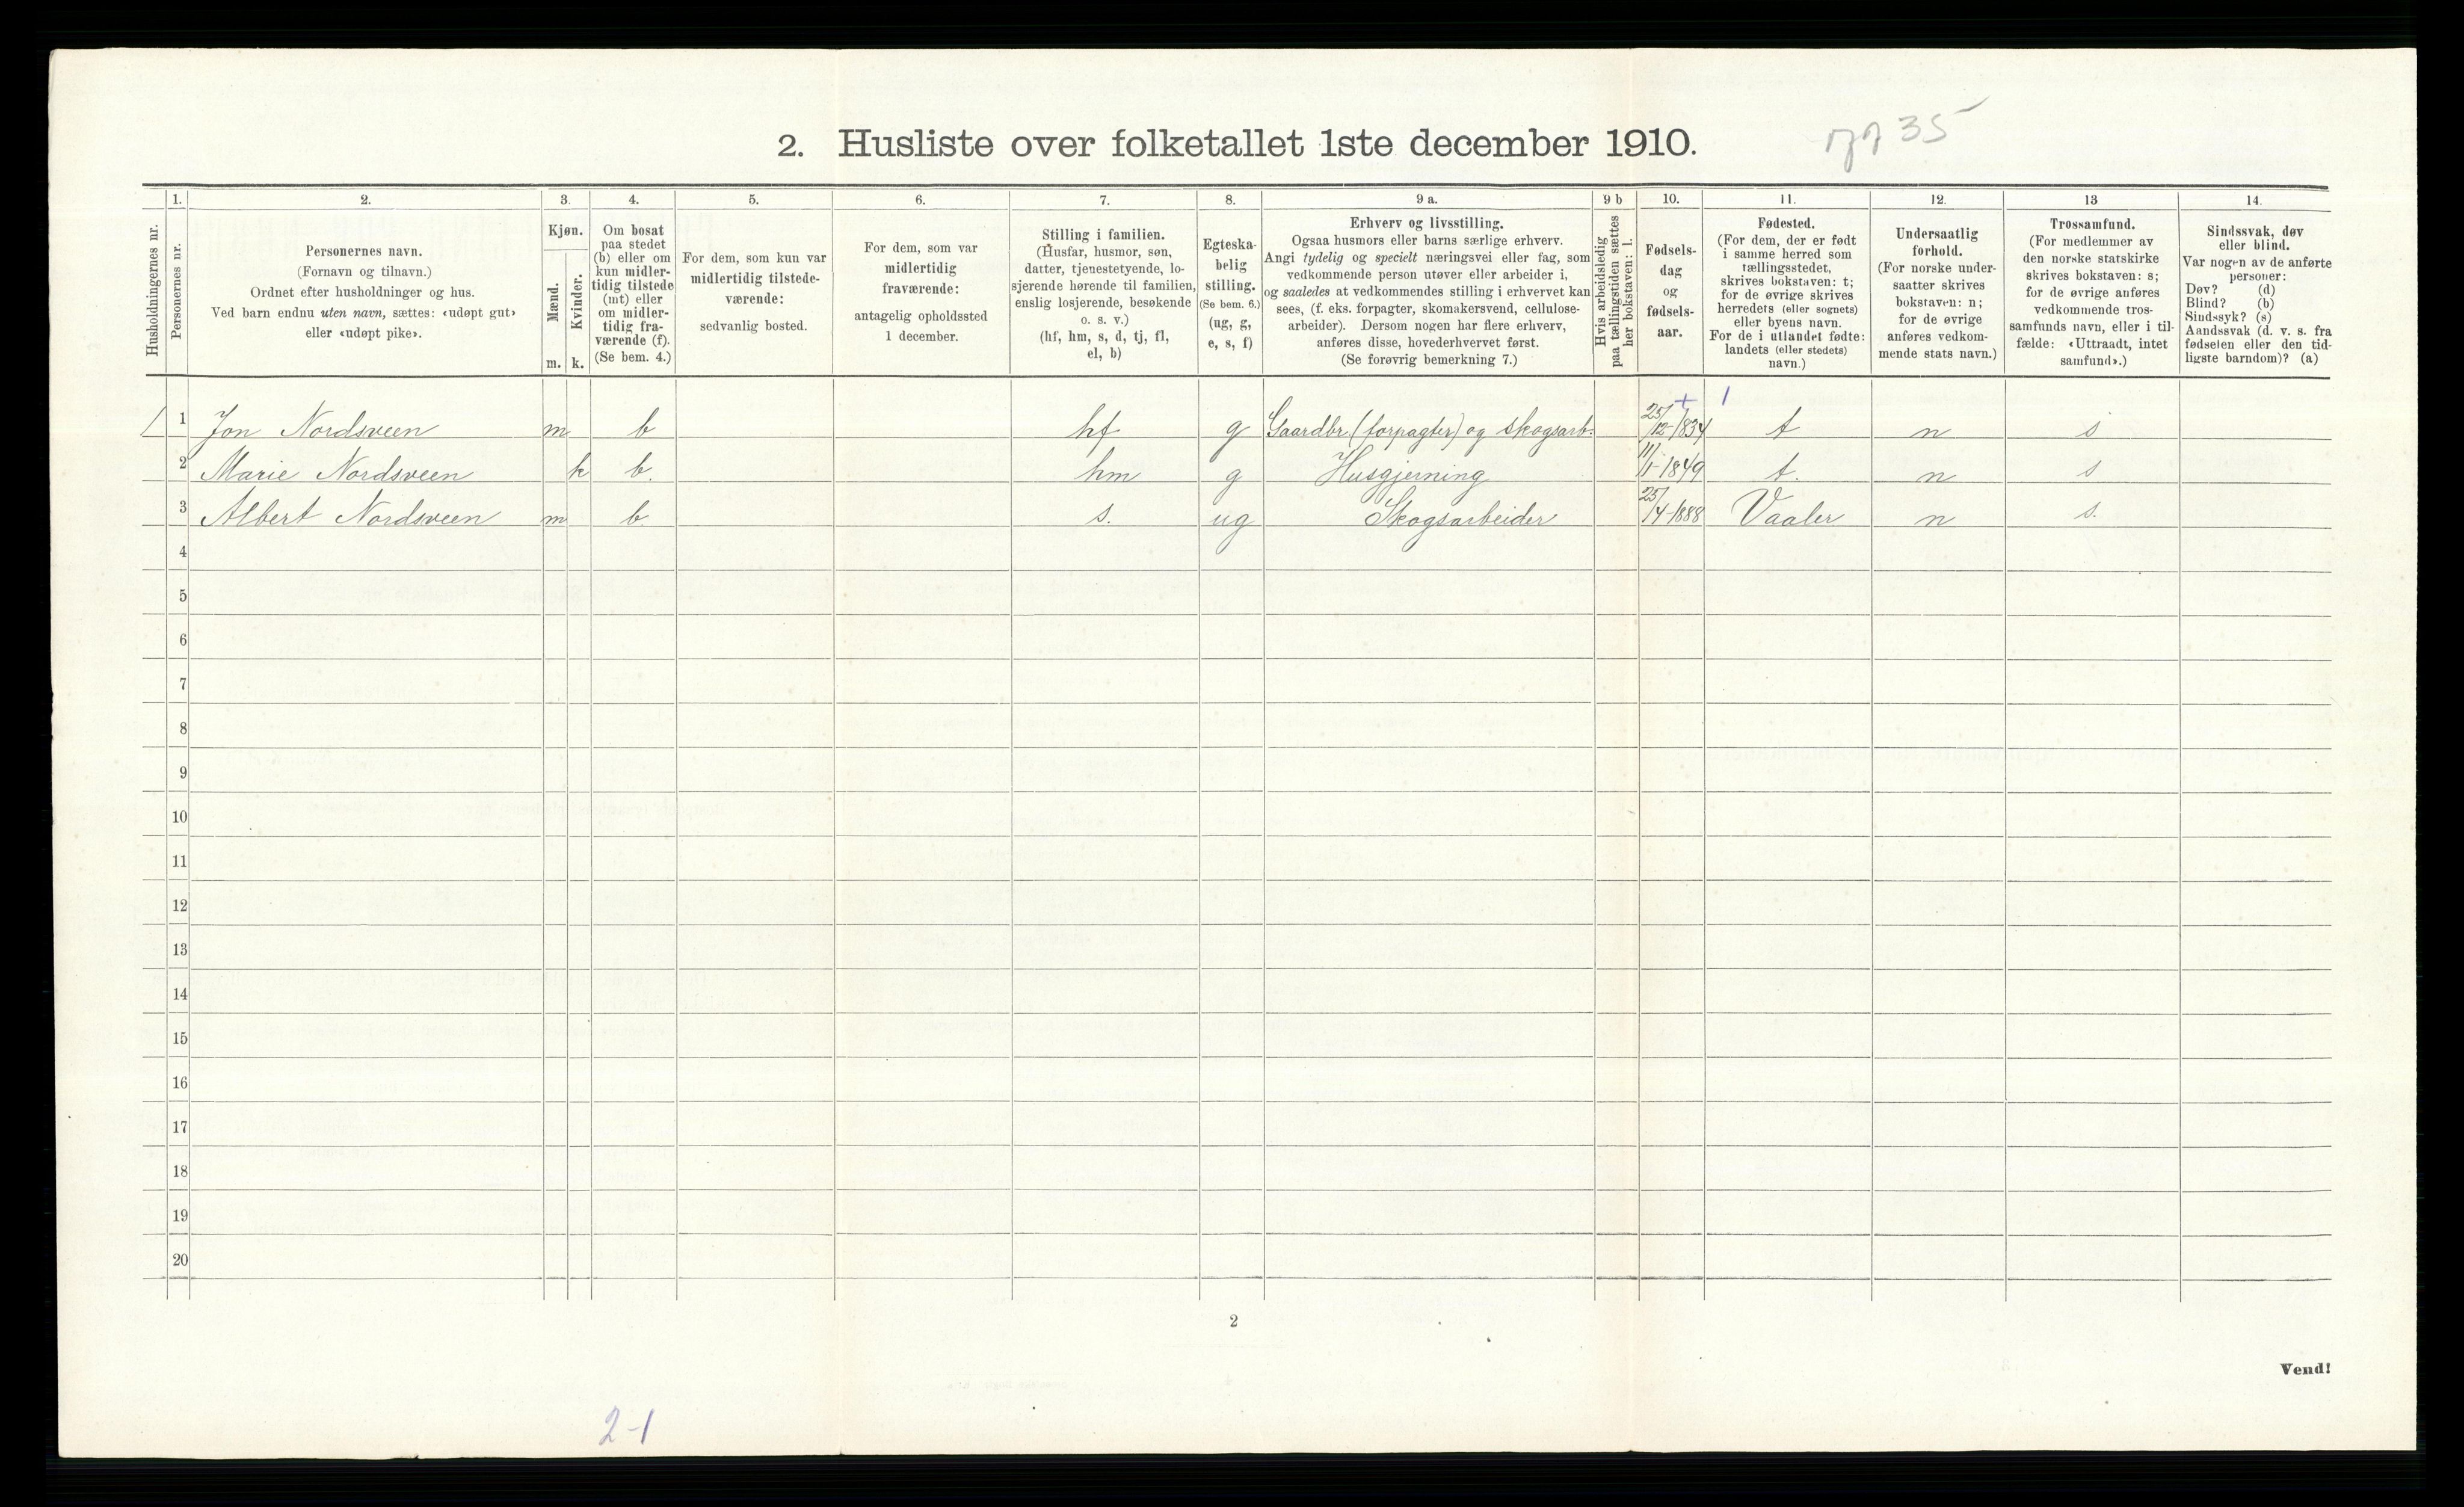 2. Husliste over folketallet 1ste december 1910.
35
Husholdningernes nr.
1.
Personernes nr.
2.
Personernes navn.
(Fornavn og tilnavn.)
Ordnet efter husholdninger og hus.
Ved barn endnu uten navn, sættes: «udøpt gut»
eller «udøpt pike».
3.
Kjøn.
Mænd.
Kvinder.
m. k.
4.
Om bosat
paa stedet
(b) eller om
kun midler-
tidig tilstede
(mt) eller
om midler-
tidig fra-
værende (f).
(Se bem. 4.)
5.
For dem, som kun var
midlertidig tilstede-
værende:
sedvanlig bosted.
6.
For dem, som var
midlertidig
fraværende:
antagelig opholdssted
1 december.
7.
Stilling i familien.
(Husfar, husmor, søn,
datter, tjenestetyende, lo-
sjerende hørende til familien,
enslig losjerende, besøkende
o. s. v.)
(hf, hm, s, d, tj, fl,
el, b)
8.
Egteska-
belig
stilling.
(Se bem. 6.)
(ug, g,
e, s, f)
9 a.
Erhverv og livsstilling.
Ogsaa husmors eller barns særlige erhverv.
Angi tydelig og specielt næringsvei eller fag, som
vedkommende person utøver eller arbeider i,
og saaledes at vedkommendes stilling i erhvervet kan
sees, (f. eks. forpagter, skomakersvend, cellulose-
arbeider). Dersom nogen har flere erhverv,
anføres disse, hovederhvervet først.
(Se forøvrig bemerkning 7.)
9 b
Hvis arbeidsledig
paa tællingstiden sættes
her bokstaven: l.
10.
Fødsels-
dag
og
fødsels-
aar.
11.
Fødested.
(For dem, der er født
i samme herred som
tællingsstedet,
skrives bokstaven: t;
for de øvrige skrives
herredets (eller sognets)
eller byens navn.
For de i utlandet fødte:
landets (eller stedets)
navn.)
12.
Undersaatlig
forhold.
(For norske under-
saatter skrives
bokstaven: n;
for de øvrige
anføres vedkom-
mende stats navn.)
13
Trossamfund.
(For medlemmer av
den norske statskirke
skrives bokstaven: s;
for de øvrige anføres
vedkommende tros-
samfunds navn, eller i til-
fælde: «Uttraadt, intet
samfund».)
14.
Sindssvak, døv
eller blind.
Var nogen av de anførte
personer:
Døv? (d)
Blind? (b)
Sindssyk? (s)
Aandssvak (d. v. s. fra
fødselen eller den tid-
ligste barndom)? (a)
+ 1
1 1 Jon Nordsveen m b hf g Gaardbr. (forpagter) og skogsarb. 25/12-1834 t n s
2 Marie Nordsveen k b. hm g Husgjerning 11/1-1849 t. n s
3 Albert Nordsveen m b s. ug Skogsarbeider 25/4-1888 Vaaler n s.
4
5
6
7
8
9
10
11
12
13
14
15
16
17
18
19
20
2
Vend!
2-1